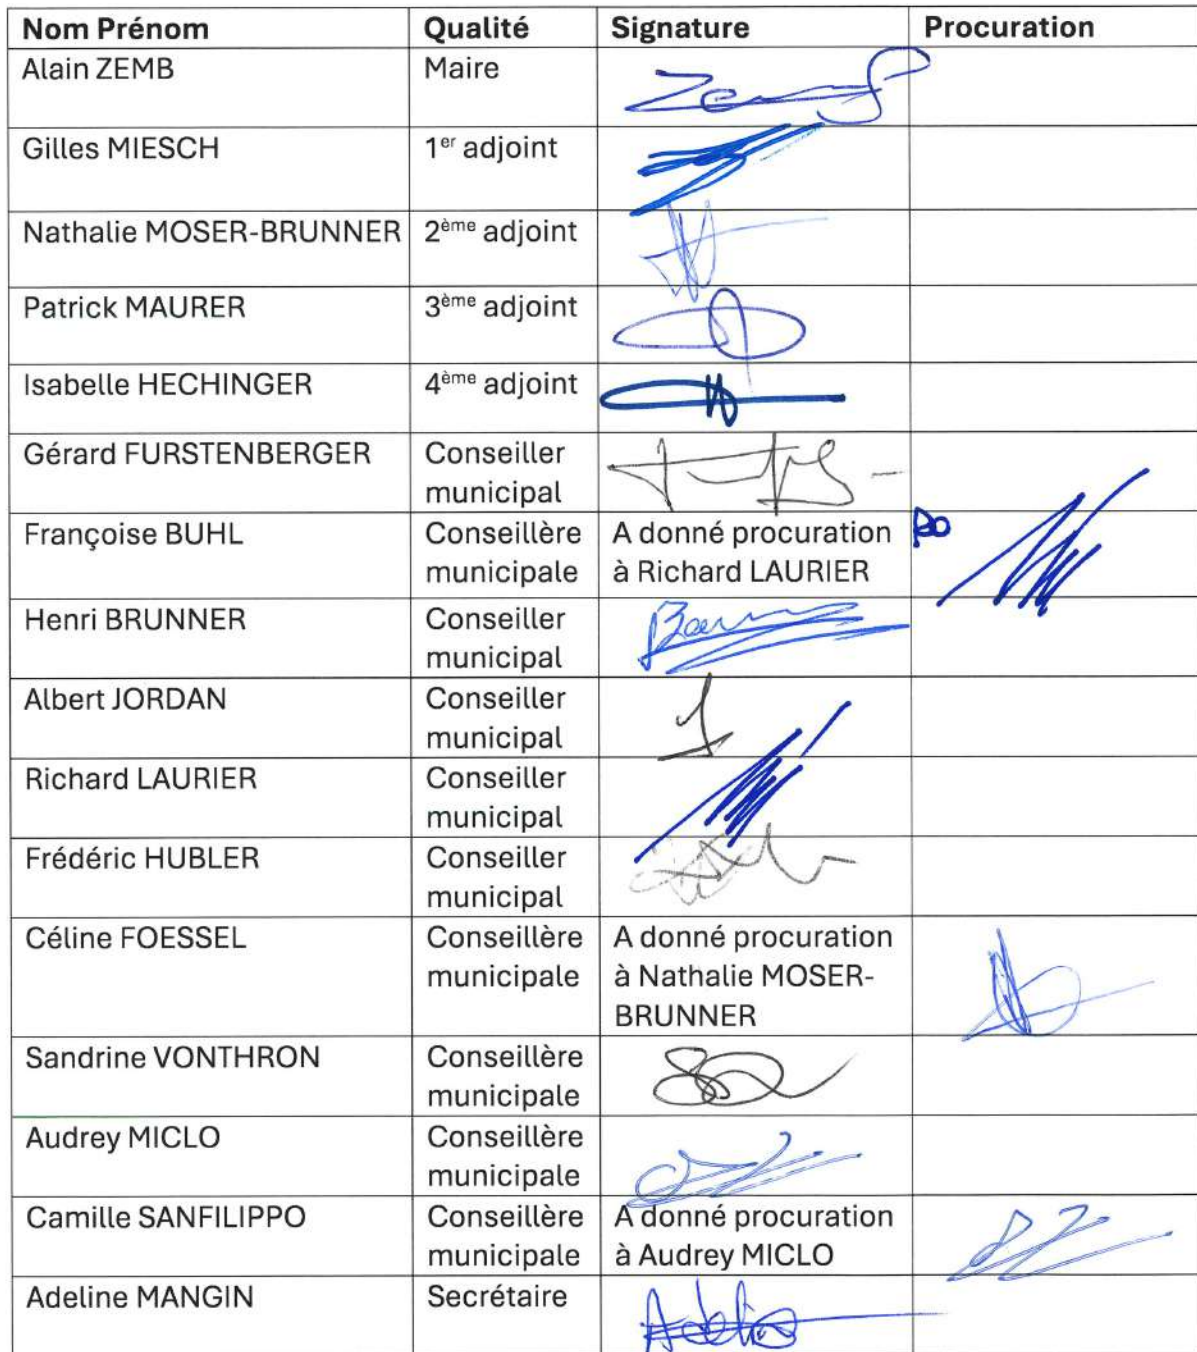 Nom Prénom Qualité Signature Procuration
Alain ZEMB Maire Zemb
Gilles MIESCH 1er adjoint
Nathalie MOSER-BRUNNER 2ème adjoint
Patrick MAURER 3ème adjoint
Isabelle HECHINGER 4ème adjoint
Gérard FURSTENBERGER Conseiller
municipal
Françoise BUHL Conseillère A donné procuration
municipale à Richard LAURIER
Henri BRUNNER Conseiller
municipal
Albert JORDAN Conseiller
municipal
Richard LAURIER Conseiller
municipal
Frédéric HUBLER Conseiller
municipal
Céline FOESSEL Conseillère A donné procuration
municipale à Nathalie MOSER-
BRUNNER
Sandrine VONTHRON Conseillère
municipale
Audrey MICLO Conseillère
municipale
Camille SANFILIPPO Conseillère A donné procuration
municipale à Audrey MICLO
Adeline MANGIN Secrétaire